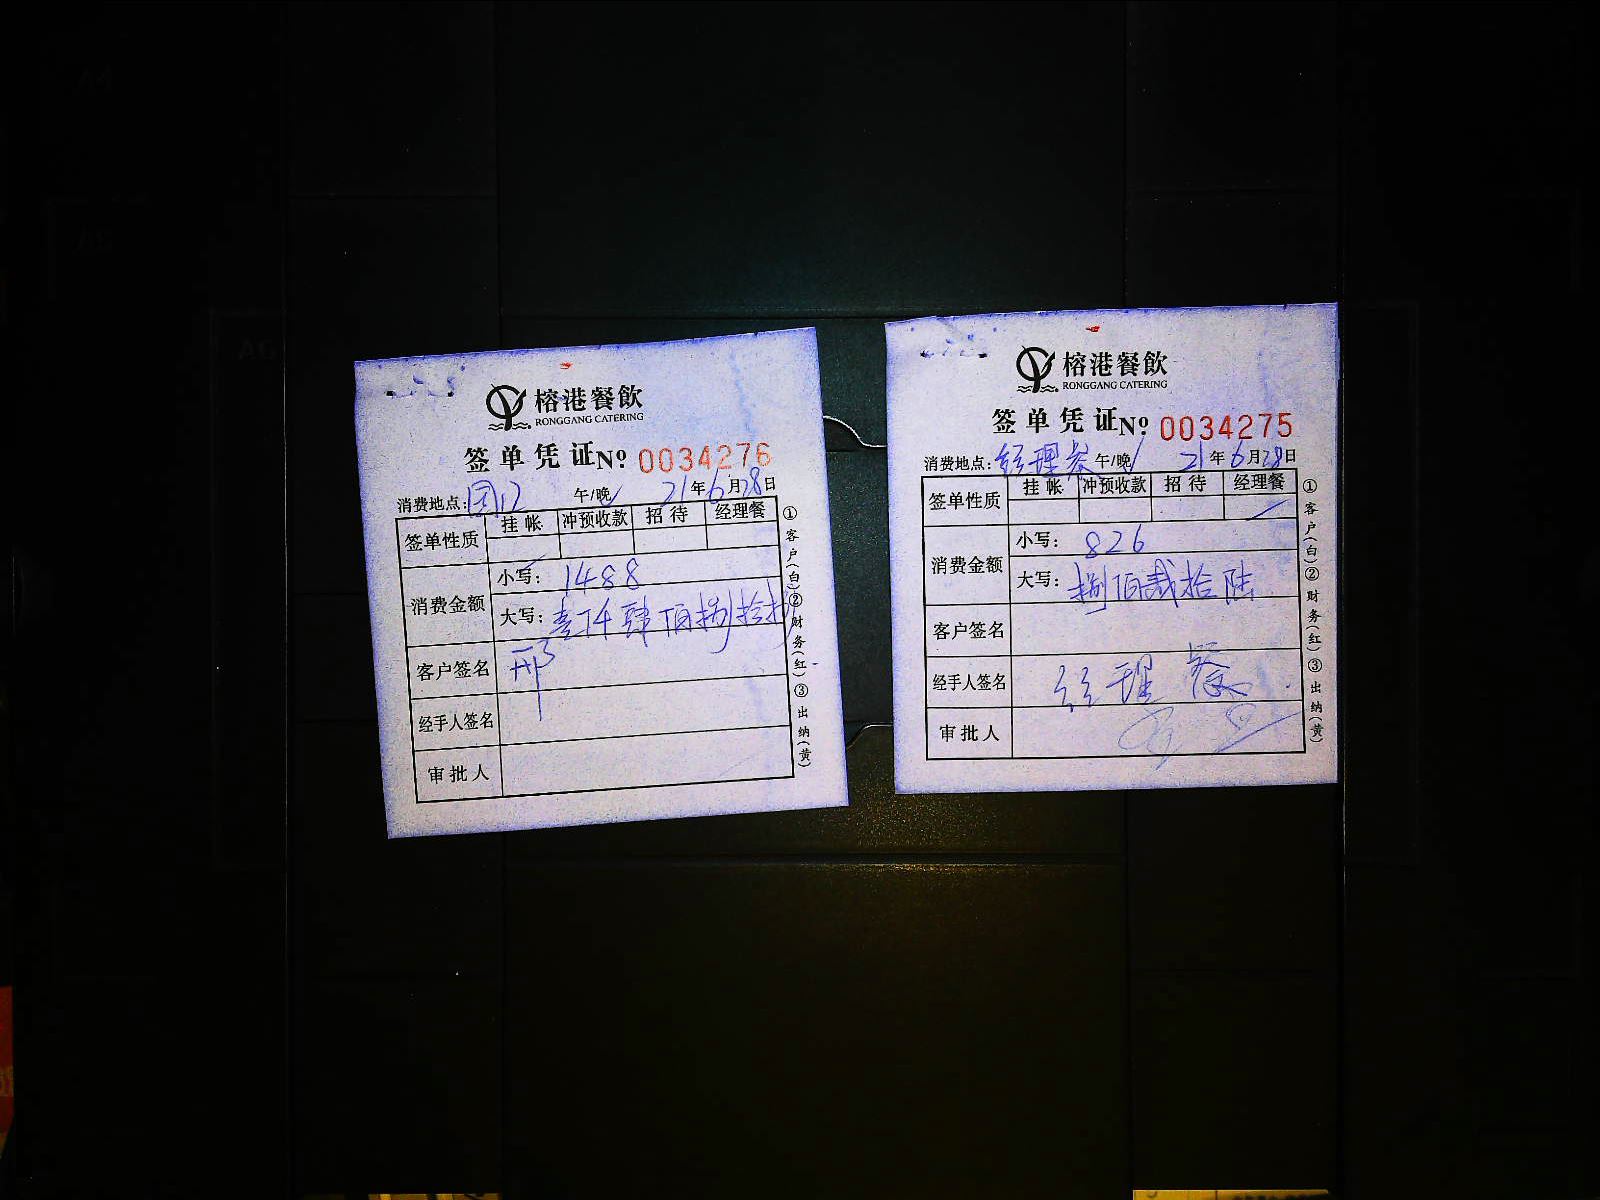 榕港餐飲
RONGGANG CATERING
签单凭证 Nº 0034276
消费地点: 午/晚 21年6月28日
签单性质 挂帐 冲预收款 招待 经理餐
消费金额 小写: 1488
大写: 壹仟肆佰捌拾捌
客户签名 邢
经手人签名
审批人
①客户(白)②财务(红)③出纳(黄)
榕港餐飲
RONGGANG CATERING
签单凭证 Nº 0034275
消费地点: 经理餐 午/晚 21年6月28日
签单性质 挂帐 冲预收款 招待 经理餐
消费金额 小写: 826
大写: 捌佰贰拾陆
客户签名
经手人签名 经理餐
审批人
①客户(白)②财务(红)③出纳(黄)